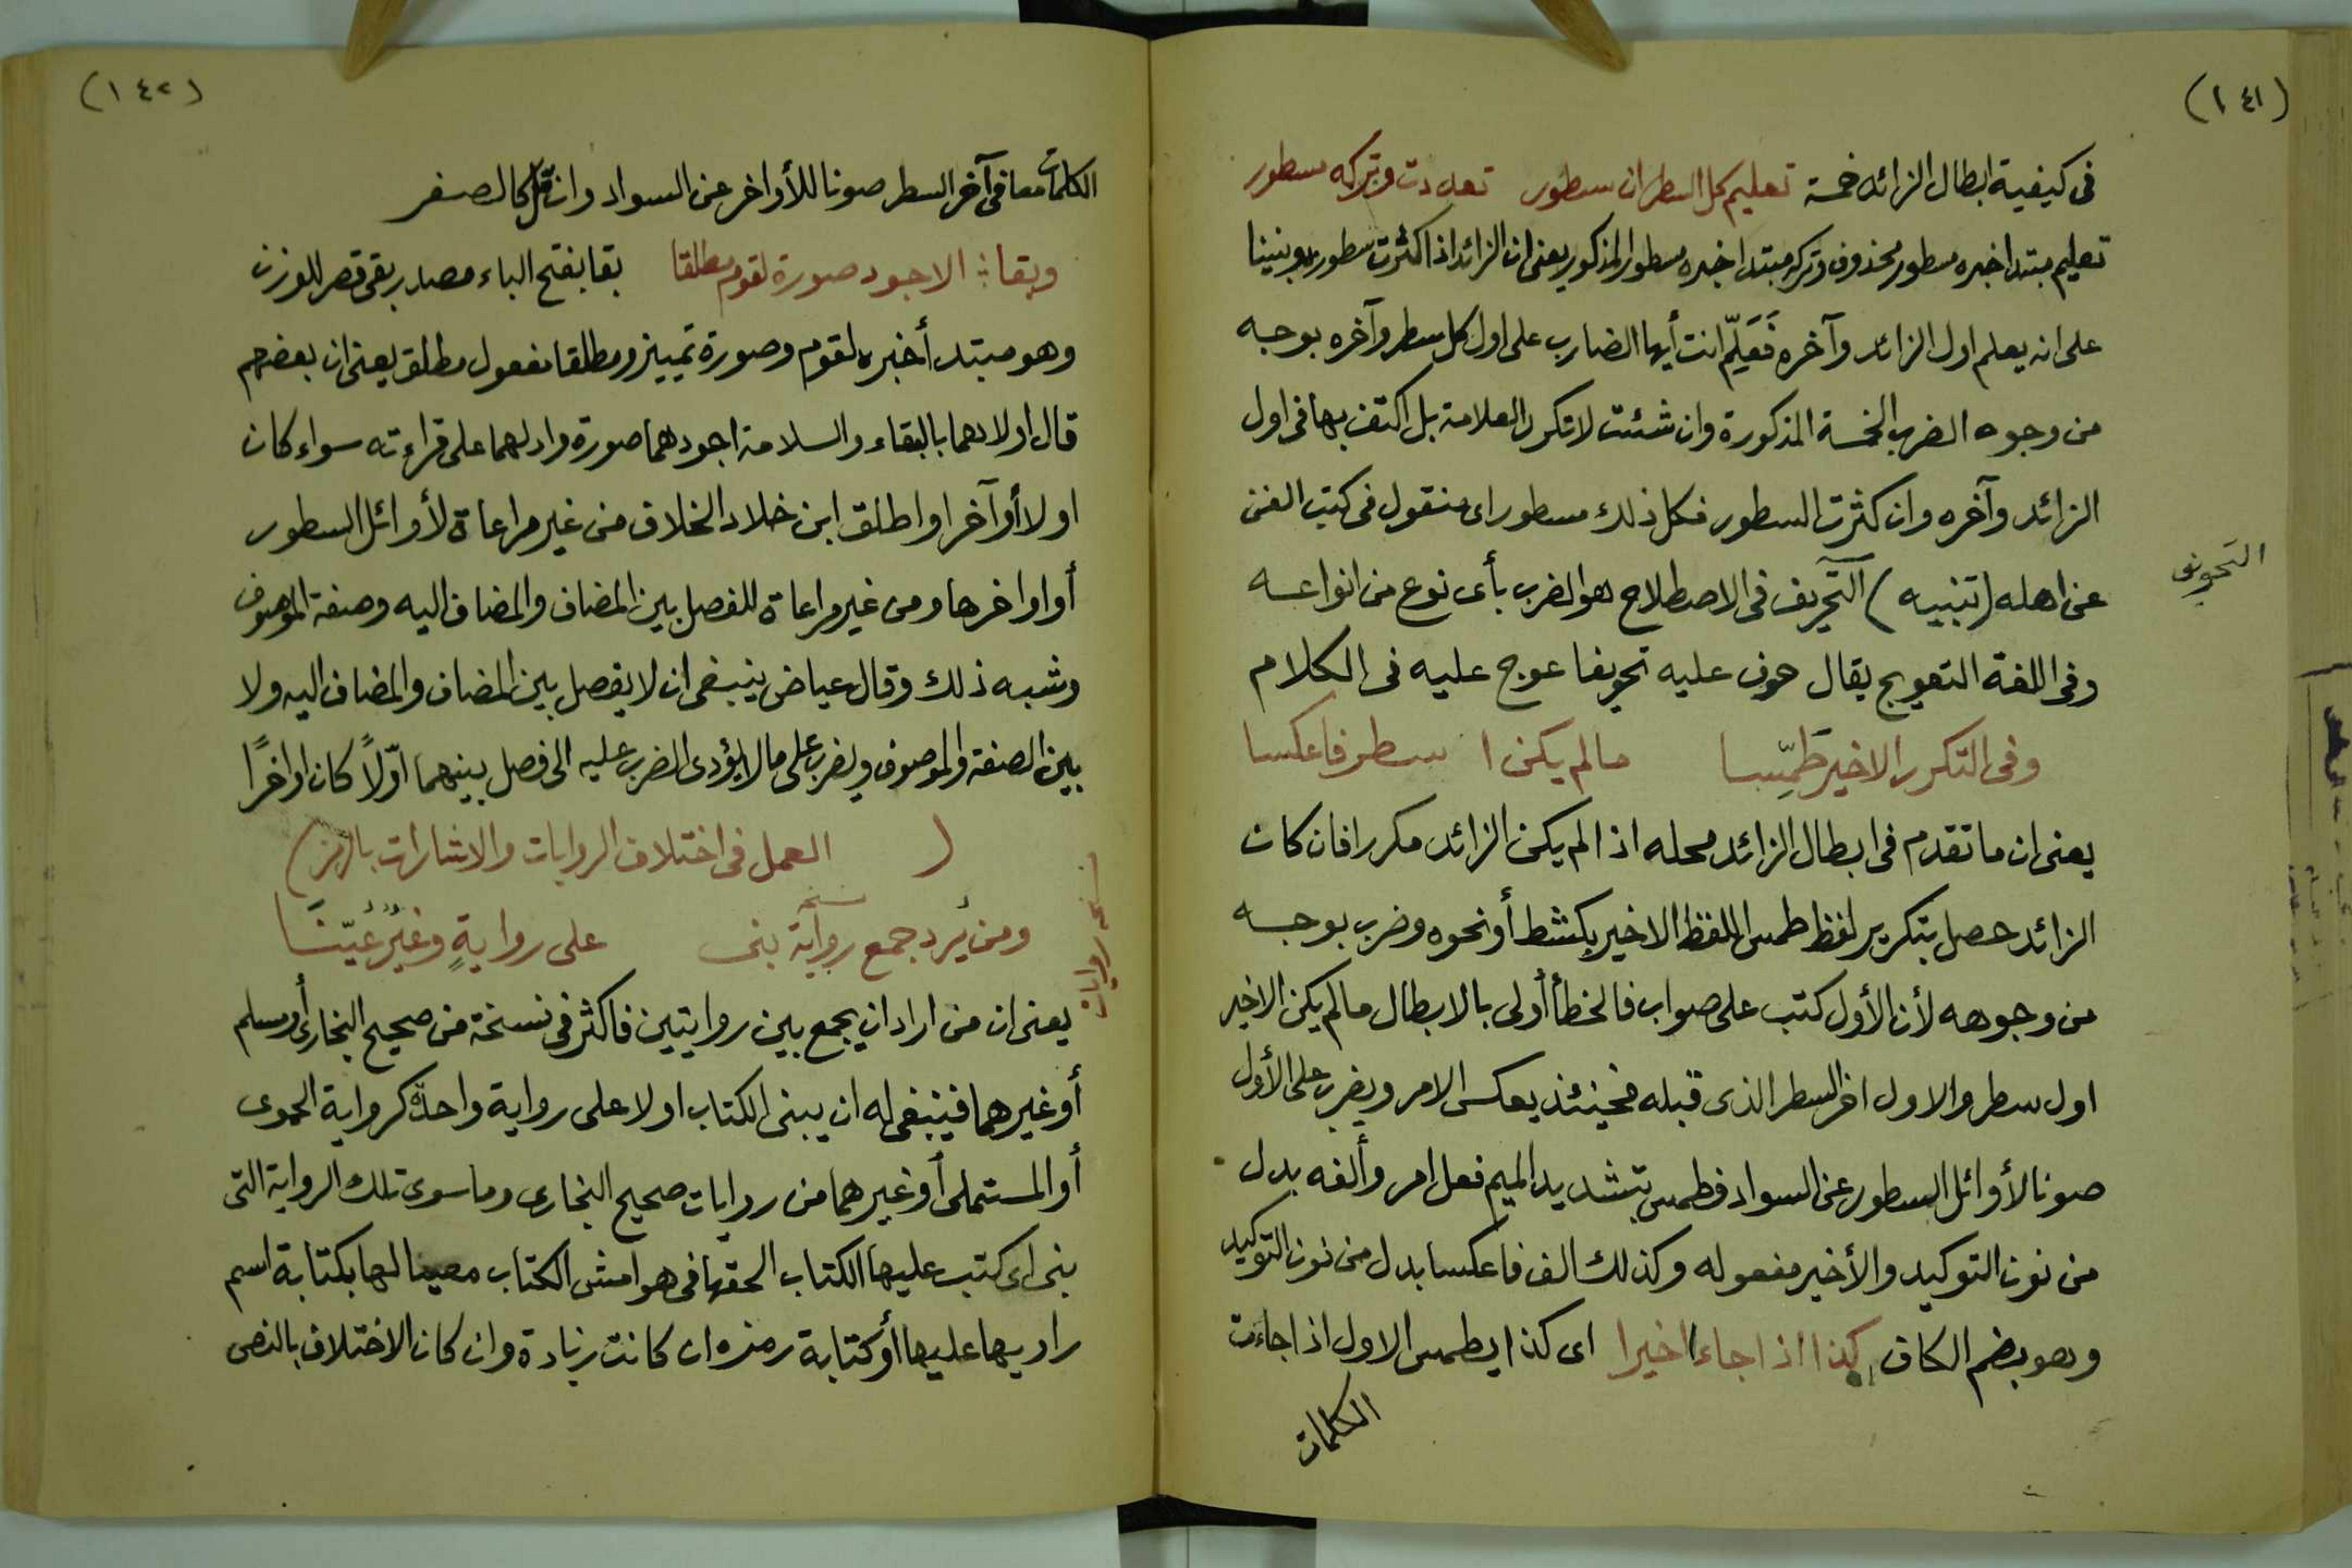 (١٤١)
فى كيفية ابطال الزائد خمسة تعليم كل السطر ان سطور تعددت وتركه مسطور
تعليم مبتدا خبره مسطور محذوف وتركه مبتدا خبره مسطور المذكور يعنى ان الزائد اذا كثرت سطوره وبنينا
على انه يعلم اول الزائد وآخره فَعَلِّم انت أيها الضارب على اول كل سطر وآخره بوجه
من وجوه الضرب الخمسة المذكورة وان شئت لا تكرر العلامة بل اكتف بها فى اول
الزائد وآخره وان كثرت السطور فكل ذلك مسطور اى منقول فى كتب الفن
عن اهله (تنبيه) التحريف فى الاصطلاح هو الضرب بأى نوع من انواعه
التحويف
وفى اللغة التعويج يقال حوف عليه تحويفا عوج عليه فى الكلام
وفى التكرر الاخير طَمِّسا مالم يكن ا سطر فاعكسا
يعنى ان ما تقدم فى ابطال الزائد محله اذا لم يكن الزائد مكررا فان كان
الزائد حصل بتكرير لفظ طمس اللفظ الاخير بكشط أو نحوه وضرب بوجه
من وجوهه لأن الأول كتب على صواب فالخطأ أولى بالابطال مالم يكن الاخير
اول سطر والاول اخر السطر الذى قبله فحينئذ يعكس الامر ويضرب على الأول
صونا لأوائل السطور عن السواد فطمس بتشديد الميم فعل امر وألفه بدل
من نون التوكيد والأخير مفعوله وكذلك الف فاعكسا بدل من نون التوكيد
وهو بضم الكاف كذا اذا جاء اخيرا اى كذا يطمس الاول اذا جاءت
الكلمات
(١٤٢)
الكلمات معا فى آخر السطر صونا للأواخر عن السواد وان قل كالصفر
وبقاء الاجود صورة لقوم مطلقا بقا بفتح الباء مصدر بقى قصر للوزن
وهو مبتدأ خبره لقوم وصورة تمييز ومطلقا مفعول مطلق يعنى ان بعضهم
قال اولاهما بالبقاء والسلامة اجودهما صورة وادلهما على قراءته سواء كان
اولا أو آخرا واطلق ابن خلاد الخلاف من غير مراعاة لأوائل السطور
أو اواخرها ومن غير مراعاة للفصل بين المضاف والمضاف اليه وصفة الموصوف
وشبه ذلك وقال عياض ينبغى ان لا يفصل بين المضاف والمضاف اليه ولا
بين الصفة والموصوف ويضرب على مالا يؤدى الضرب عليه الى فصل بينهما اوّلاً كان او اخرًا
( العمل فى اختلاف الروايات والاشارات بالرمز)
ومن يُرد جمع رواية بنى على روايةٍ وغيرُ عيّنا
نسخة
نسخة روايات
يعنى ان من اراد ان يجمع بين روايتين فاكثر فى نسخة من صحيح البخارى أو مسلم
أو غيرهما فينبغى له ان يبنى الكتاب اولا على رواية واحدة كرواية الحموى
أو المستملى أو غيرهما من روايات صحيح البخارى وما سوى تلك الرواية التى
بنى اى كتب عليها الكتاب الحقها فى هوامش الكتاب معينا لها بكتابة اسم
راويها عليها أو كتابة رمزه ان كانت زيادة وان كان الاختلاف بالنقص